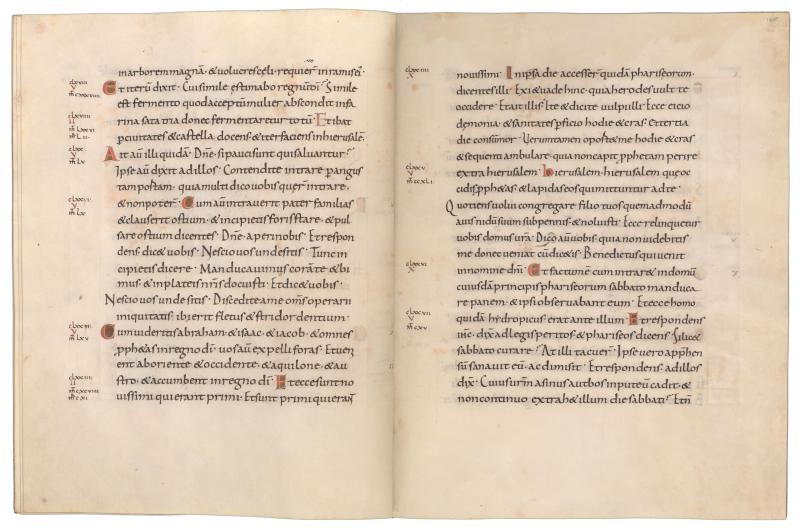 in arborem magnā · & volucres cęli · requier̄ in ramis ei'·
Et iterū dixit · Cui simile estimabo regnū dī · Simile
est fermento quod acceptū mulier abscondit in fa
rina sata tria donec fermentaretur totū · Et ibat
p ciuitates & castella · docens & iter faciens in hierusalē·
Ait aū illi quidā · Dn̄e · si pauci sunt qui saluantur ·
Ipse aū dixit ad illos · Contendite intrare p angus
tam portam · quia multi dico uobis querer̄ intrare ,
& non poter̄ · Cum aū intrauerit pater familias
& clauserit ostium · & incipietis foris stare · & pul
sare ostium dicentes · Dn̄e · aperi nobis · Et respon
dens dic& uobis · Nescio uos unde sitis · Tunc in
cipietis dicere · Manducauimus corā te & bi
bimus · & in plateis nr̄is docuisti · Et dic& uobis ·
Nescio uos unde sitis · Discedite a me om̄s operarii
iniquitatis · ibi erit fletus & stridor dentium ·
Cum uideritis abraham · & isaac · & iacob · & omnes
pph&as in regno dī · uos aū expelli foras · Et uenı̄
ent ab oriente & occidente · & aquilone · & au
stro · & accumbent in regno dī · Et ecce sunt no
uissimi qui erant primi · Et sunt primi qui eran̄
nouissimi · In ipsa die accesser̄ quidā phariseorum ·
dicentes illi · Exi & uade hinc · quia herodes uult te
occidere · Et ait illis · Ite & dicite uulpi illi · Ecce eicio
dęmonia · & sanitates pficio hodie & cras · & tertia
die consūmor · Verumtamen oport& me hodie & cras
& sequenti ambulare · quia non capit pphetam perire
extra hierusalem · hierusalem · hierusalem quę oc
cidis pph&as · & lapidas eos qui mittuntur ad te ·
Quotiens uolui congregare filios tuos quemadmodū
auis nidū suum sub pennis · & noluisti · Ecce relinquetur
uobis domus ur̄a · Dico aū uobis quia non uidebitis
me donec ueniat cū dic&is · Benedictus qui uenit
in nomine dn̄i · Et factum ē cum intrar& in domū
cuiusdā principis phariseorum sabbato manduca
re panem · & ipsi obseruabant eum · Et ecce homo
quidā hydropicus erat ante illum · Et respondens
ih̄c · dix̄ ad legis peritos & phariseos dicens · Si lic&
sabbato curare · At illi tacuer̄ · Ipse uero appħen
sū sanauit eū · ac dimisit · Et respondens · ad illos
dix̄ · Cuius ur̄m asinus aut bos in puteū cadit · &
non continuo extrah& illum die sabbati · Et n̄